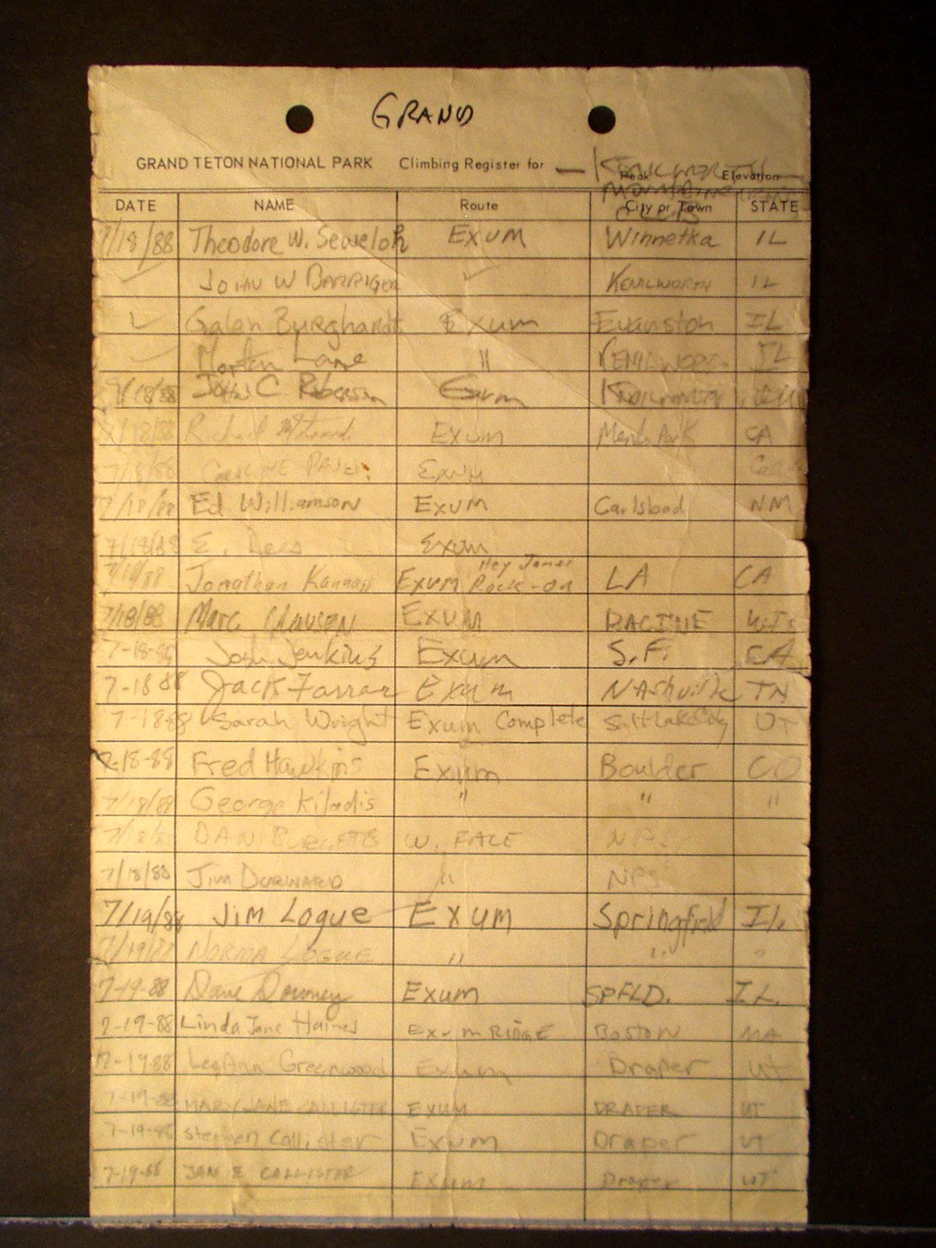 GRAND
GRAND TETON NATIONAL PARK Climbing Register for — KENILWORTH
Peak Elevation
MOUNTAINEERING
CLUB
DATE NAME Route City or Town STATE
7/18/88 Theodore W. EXUM Winnetka IL
✓ JOHN W BARRIGER " KENILWORTH IL
✓ Galen Burghardt Exum Evanston IL
✓ Lane " KENILWORTH IL
7/18/88 John C. Exum
7/18/88 EXUM Menlo Park CA
7/18/88 CAROLINE Exum
7/18/88 Ed Williamson EXUM Carlsbad NM
7/19/88 E. Exum
Hey James
7/18/88 Jonathan EXUM Rock-on LA CA
7/18/88 Marc Clausen EXUM RACINE WIS
7-18-88 Josh Jenkins Exum S.F. CA
7-18 88 Jack Farrar Exum NAshville TN
7-1888 Sarah Wright Exum Complete Salt Lake City UT
7-18-88 Fred Hawkins Exum Boulder CO
7/18/88 George Kiladis " " "
7/18/88 DAN W. FACE NPS
7/18/88 JIM DORWARD " NPS
7/19/88 Jim Logue EXUM Springfield IL
7/19/88 NORMA LOGUE " " "
7-19-88 Dave Downey Exum SPFLD. IL.
7-19-88 Linda Jane Haines EXUM RIDGE BOSTON MA
7-19-88 LeeAnn Greenwood Exum Draper Ut
7-19-88 MARY JANE CALLISTER EXUM DRAPER UT
7-19-88 Stephen Callister Exum Draper UT
7-19-88 JAN E CALLISTER Exum Draper UT